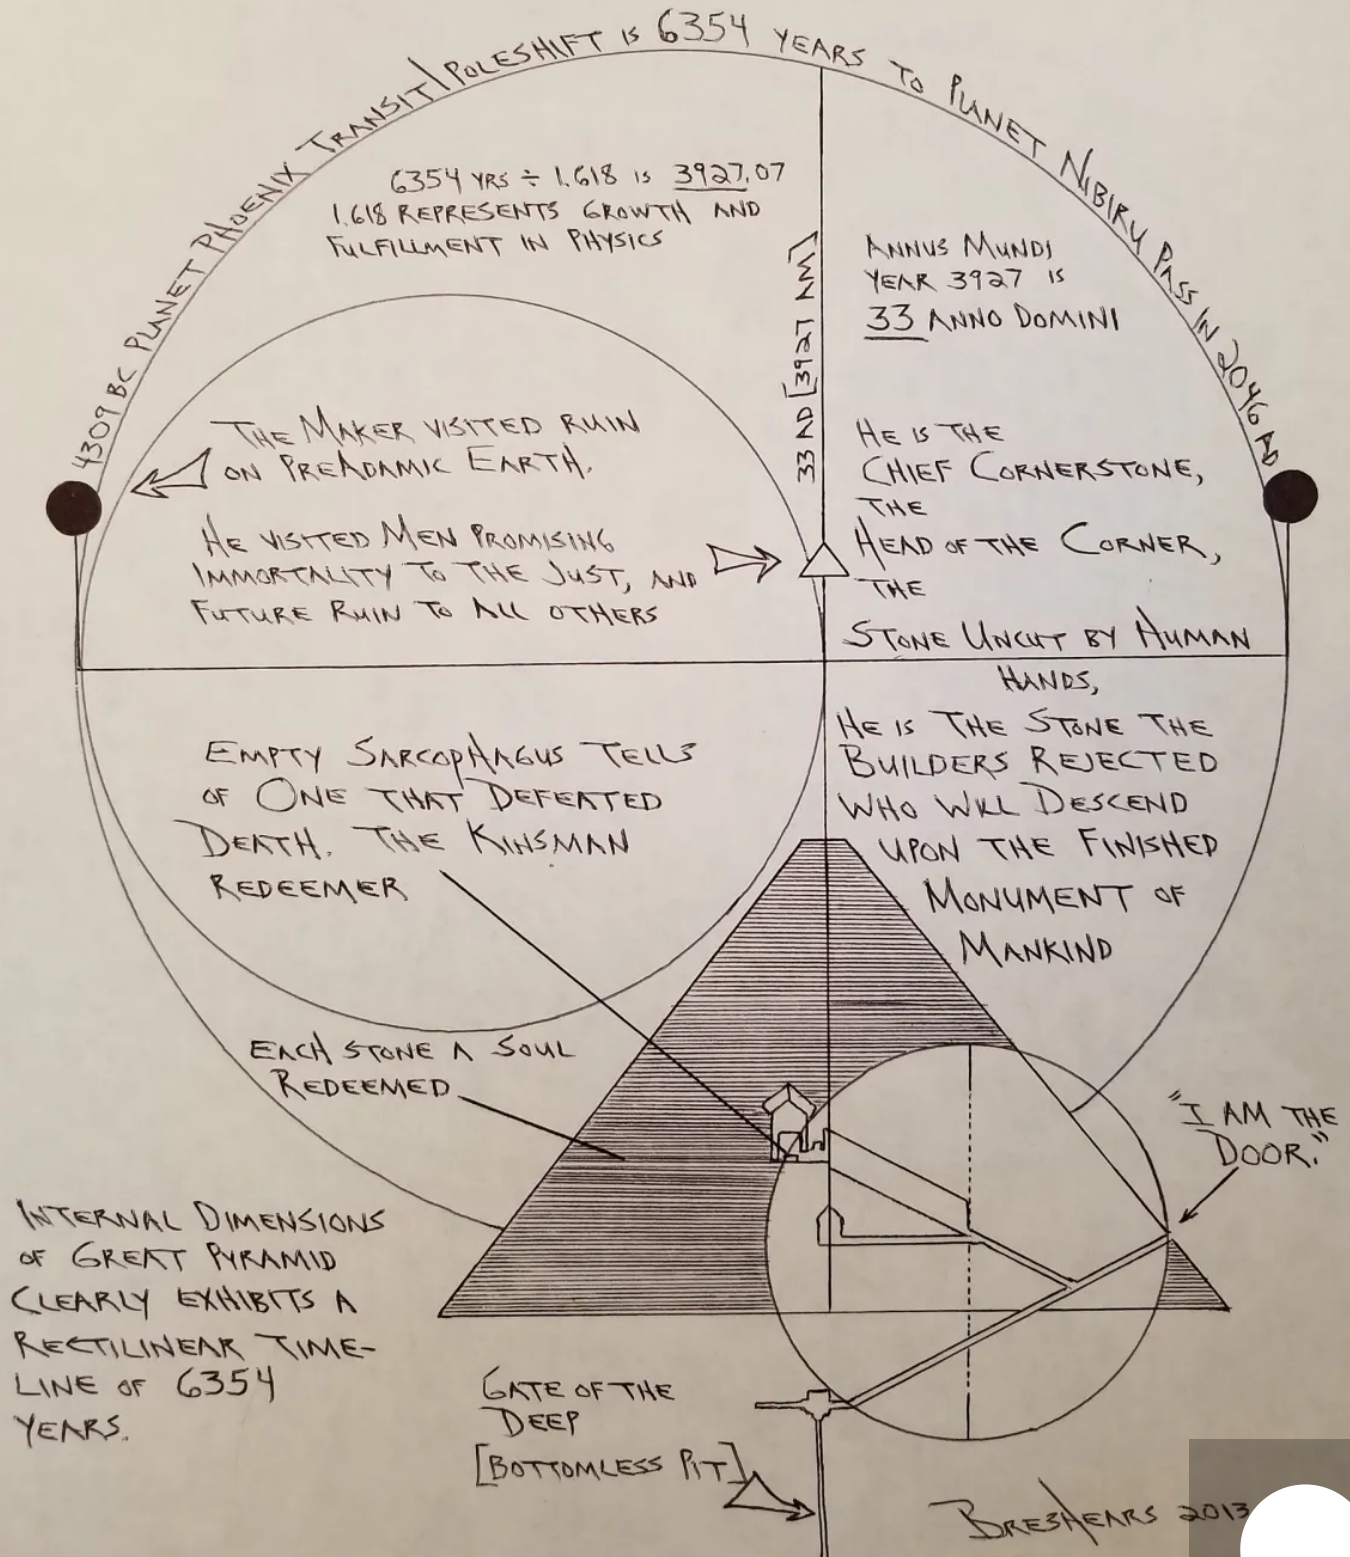 4309 BC PLANET PHOENIX TRANSIT/POLESHIFT IS 6354 YEARS TO PLANET NIBIRU PASS IN 2046 AD
6354 YRS ÷ 1.618 IS 3927.07
1.618 REPRESENTS GROWTH AND
FULFILLMENT IN PHYSICS
33 AD [3927 AM]
ANNUS MUNDI
YEAR 3927 IS
33 ANNO DOMINI
THE MAKER VISITED RUIN
ON PREADAMIC EARTH.
HE VISITED MEN PROMISING
IMMORTALITY TO THE JUST, AND
FUTURE RUIN TO ALL OTHERS
HE IS THE
CHIEF CORNERSTONE,
THE
HEAD OF THE CORNER,
THE
STONE UNCUT BY HUMAN
HANDS,
HE IS THE STONE THE
BUILDERS REJECTED
WHO WILL DESCEND
UPON THE FINISHED
MONUMENT OF
MANKIND
EMPTY SARCOPHAGUS TELLS
OF ONE THAT DEFEATED
DEATH. THE KINSMAN
REDEEMER
EACH STONE A SOUL
REDEEMED
"I AM THE
DOOR."
INTERNAL DIMENSIONS
OF GREAT PYRAMID
CLEARLY EXHIBITS A
RECTILINEAR TIME-
LINE OF 6354
YEARS.
GATE OF THE
DEEP
[BOTTOMLESS PIT]
BRESHEARS 2013